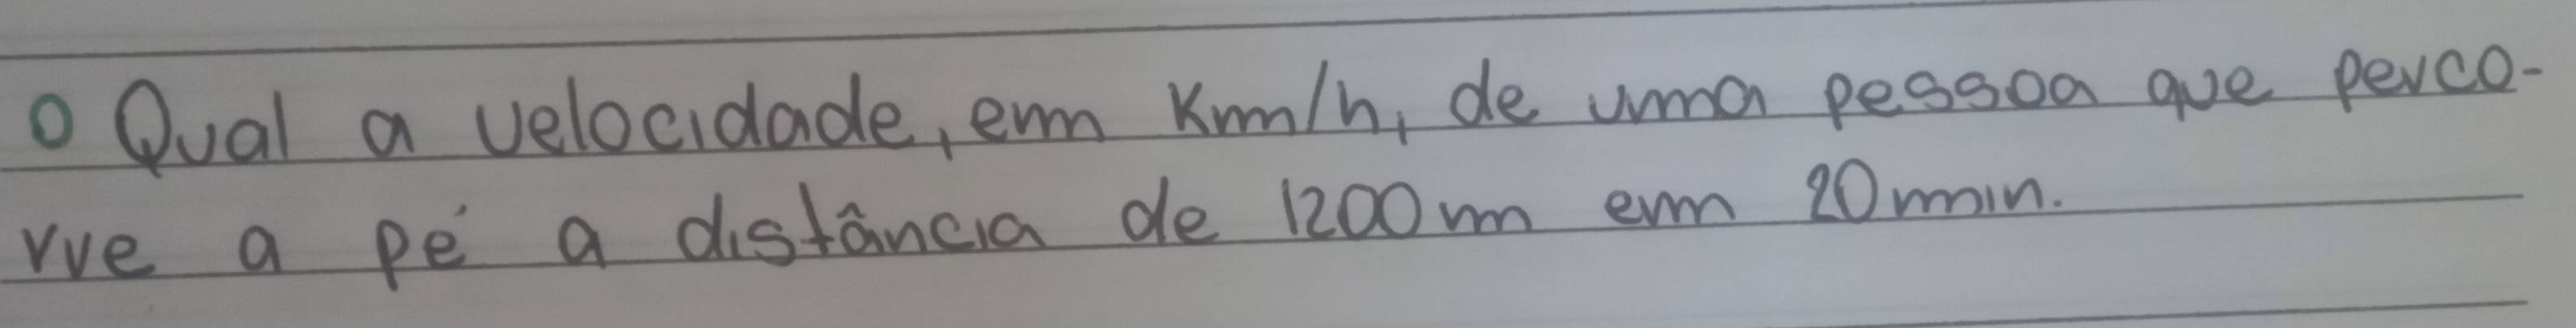 O Qual a velocidade, em Km/h, de uma pessoa que perco-
rre a pé a distância de 1200m em 20min.